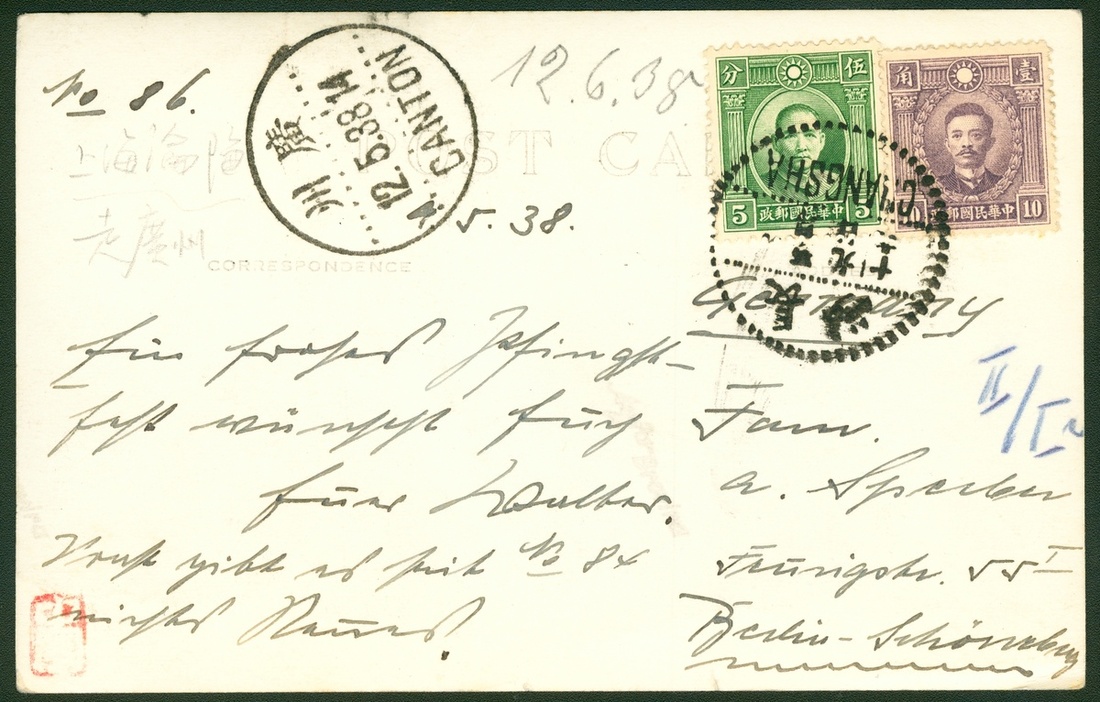 No 86.
12.6.38
上海淪陷
走廣州
廣州
12.5.38 14
CANTON
5.38.
POST CA
CORRESPONDENCE
分 伍
5 政郵國民華中 5
角 壹
政郵國民華中 10
CHANGSHA
長沙
Germany
Ein frohes Pfingst-
fest wünscht Euch
Euer Walter.
Sonst gibt es seit No 84
nichts Neues.
II/I
Fam.
A. Sperber
Feurigstr. 55 I
Berlin-Schöneberg